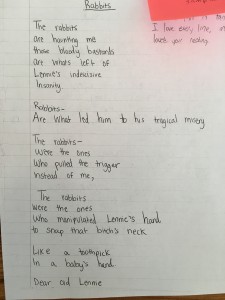 Rabbits
The rabbits
are haunting me
those bloody bastards
are whats left of
Lennie's indecisive
Insanity.
Rabbits-
Are what led him to his tragical misery
The rabbits-
were the ones
who pulled the trigger
instead of me,
The rabbits
were the ones
who manipulated Lennie's hand
to snap that bitch's neck
Like a toothpick
In a baby's hand.
Dear old Lennie
I love every line,
loved your reading